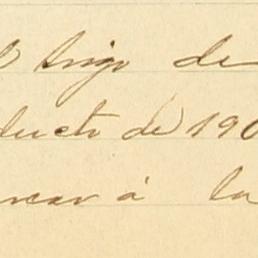 l trigo de
ducto de 190
ncar á la